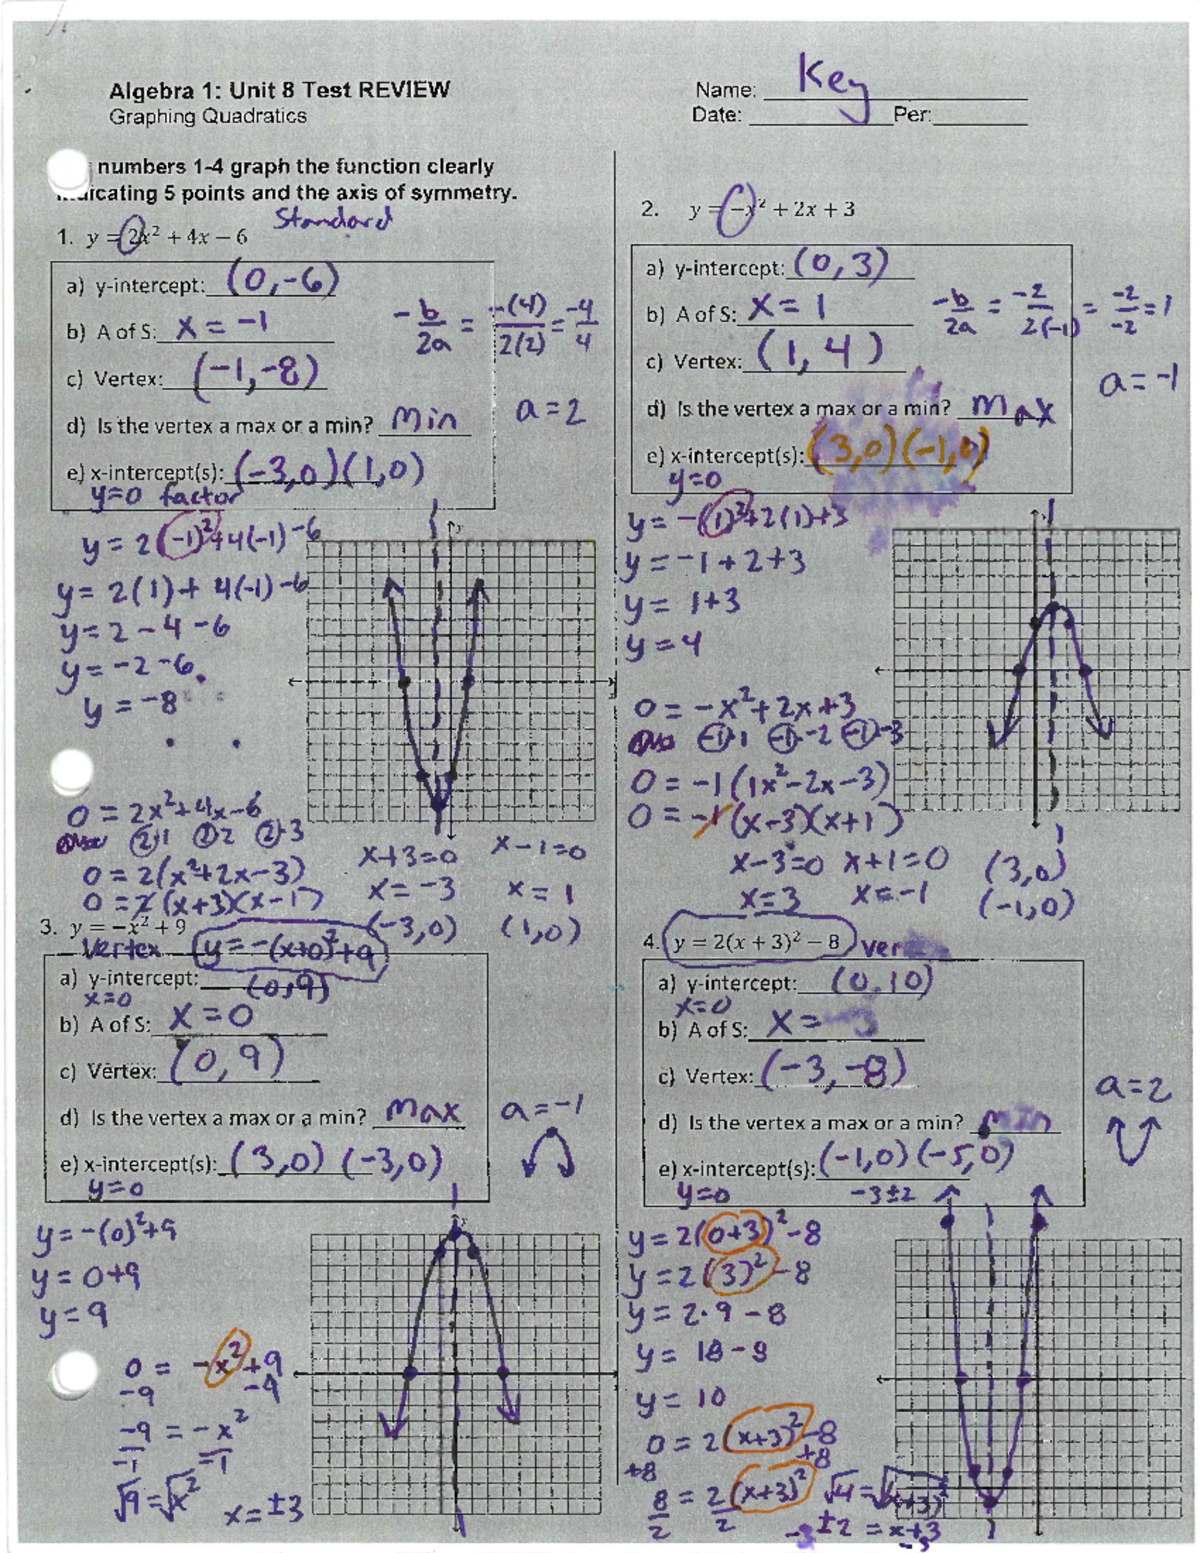 Algebra 1: Unit 8 Test REVIEW
Graphing Quadratics
Name: Key
Date: Per:
numbers 1-4 graph the function clearly
indicating 5 points and the axis of symmetry.
Standard
1. y = 2x² + 4x − 6
a) y-intercept: (0,-6)
b) A of S: x = -1
c) Vertex: (-1,-8)
d) Is the vertex a max or a min? Min
e) x-intercept(s): (-3,0)(1,0)
y=0 factor
-b/2a = -(4)/2(2) = -4/4
a=2
y = 2(-1)²+4(-1)-6
y = 2(1)+4(-1)-6
y = 2-4-6
y = -2-6
y = -8
0 = 2x²+4x-6
②·1 ②·2 ②·3
0 = 2(x²+2x-3)
0 = 2(x+3)(x-1)
x+3=0 x-1=0
x=-3 x=1
(-3,0) (1,0)
2. y = −x² + 2x + 3
a) y-intercept: (0,3)
b) A of S: x = 1
c) Vertex: (1,4)
d) Is the vertex a max or a min? Max
e) x-intercept(s): (3,0)(-1,0)
y=0
-b/2a = -2/2(-1) = -2/-2 = 1
a=-1
y = -(1)²+2(1)+3
y = -1+2+3
y = 1+3
y = 4
0 = -x²+2x+3
-1·1 -1·-2 -1·-3
0 = -1(1x²-2x-3)
0 = -1(x-3)(x+1)
x-3=0 x+1=0 (3,0)
x=3 x=-1 (-1,0)
3. y = −x² + 9
Vertex y=-(x+0)²+9
a) y-intercept: (0,9)
x=0
b) A of S: x = 0
c) Vertex: (0,9)
d) Is the vertex a max or a min? Max
e) x-intercept(s): (3,0) (-3,0)
y=0
a=-1
y = -(0)²+9
y = 0+9
y = 9
0 = -x²+9
-9 -9
-9 = -x²
-1 -1
√9 = √x²
x = ±3
4. y = 2(x + 3)² − 8
ver
a) y-intercept: (0,10)
x=0
b) A of S: x = -3
c) Vertex: (-3,-8)
d) Is the vertex a max or a min? min
e) x-intercept(s): (-1,0)(-5,0)
y=0 -3±2
a=2
y = 2(0+3)²-8
y = 2(3)²-8
y = 2·9-8
y = 18-8
y = 10
0 = 2(x+3)²-8
+8 +8
8/2 = 2/2(x+3)² √4 = √(x+3)²
-3 ±2 = x+3
-3